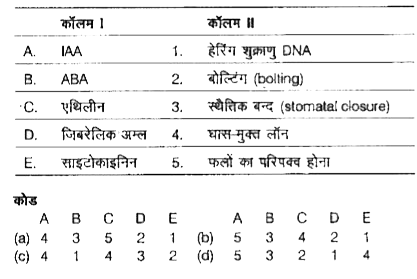 कॉलम I कॉलम II
A. IAA 1. हेरिंग शुक्राणु DNA
B. ABA 2. बोल्टिंग (bolting)
C. एथिलीन 3. स्थैतिक बन्द (stomatal closure)
D. जिबरेलिक अम्ल 4. घास-मुक्त लॉन
E. साइटोकाइनिन 5. फलों का परिपक्व होना
कोड
A B C D E A B C D E
(a) 4 3 5 2 1 (b) 5 3 4 2 1
(c) 4 1 4 3 2 (d) 5 3 2 1 4